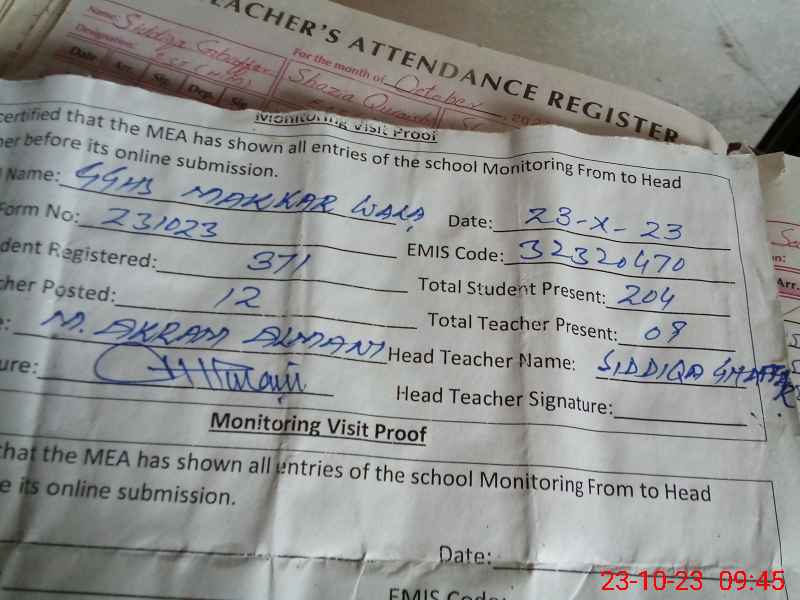 TEACHER'S ATTENDANCE REGISTER
Name: Siddiqa
For the month of October 202
Designation:
Shazia
Date Arr. Sig. Dep. Sig.
Monitoring Visit Proof
certified that the MEA has shown all entries of the school Monitoring From to Head
her before its online submission.
Name: GGHS MAKKAR WALA Date: 23-X-23
Form No: 231023 EMIS Code: 32320470
dent Registered: 371 Total Student Present: 204
cher Posted: 12 Total Teacher Present: 09
e: M. AKRAM ALMANI Head Teacher Name: SIDDIQA GHAFFAR
ure: Head Teacher Signature:
Monitoring Visit Proof
that the MEA has shown all entries of the school Monitoring From to Head
e its online submission.
Date:
EMIS Code:
Arr.
23-10-23 09:45